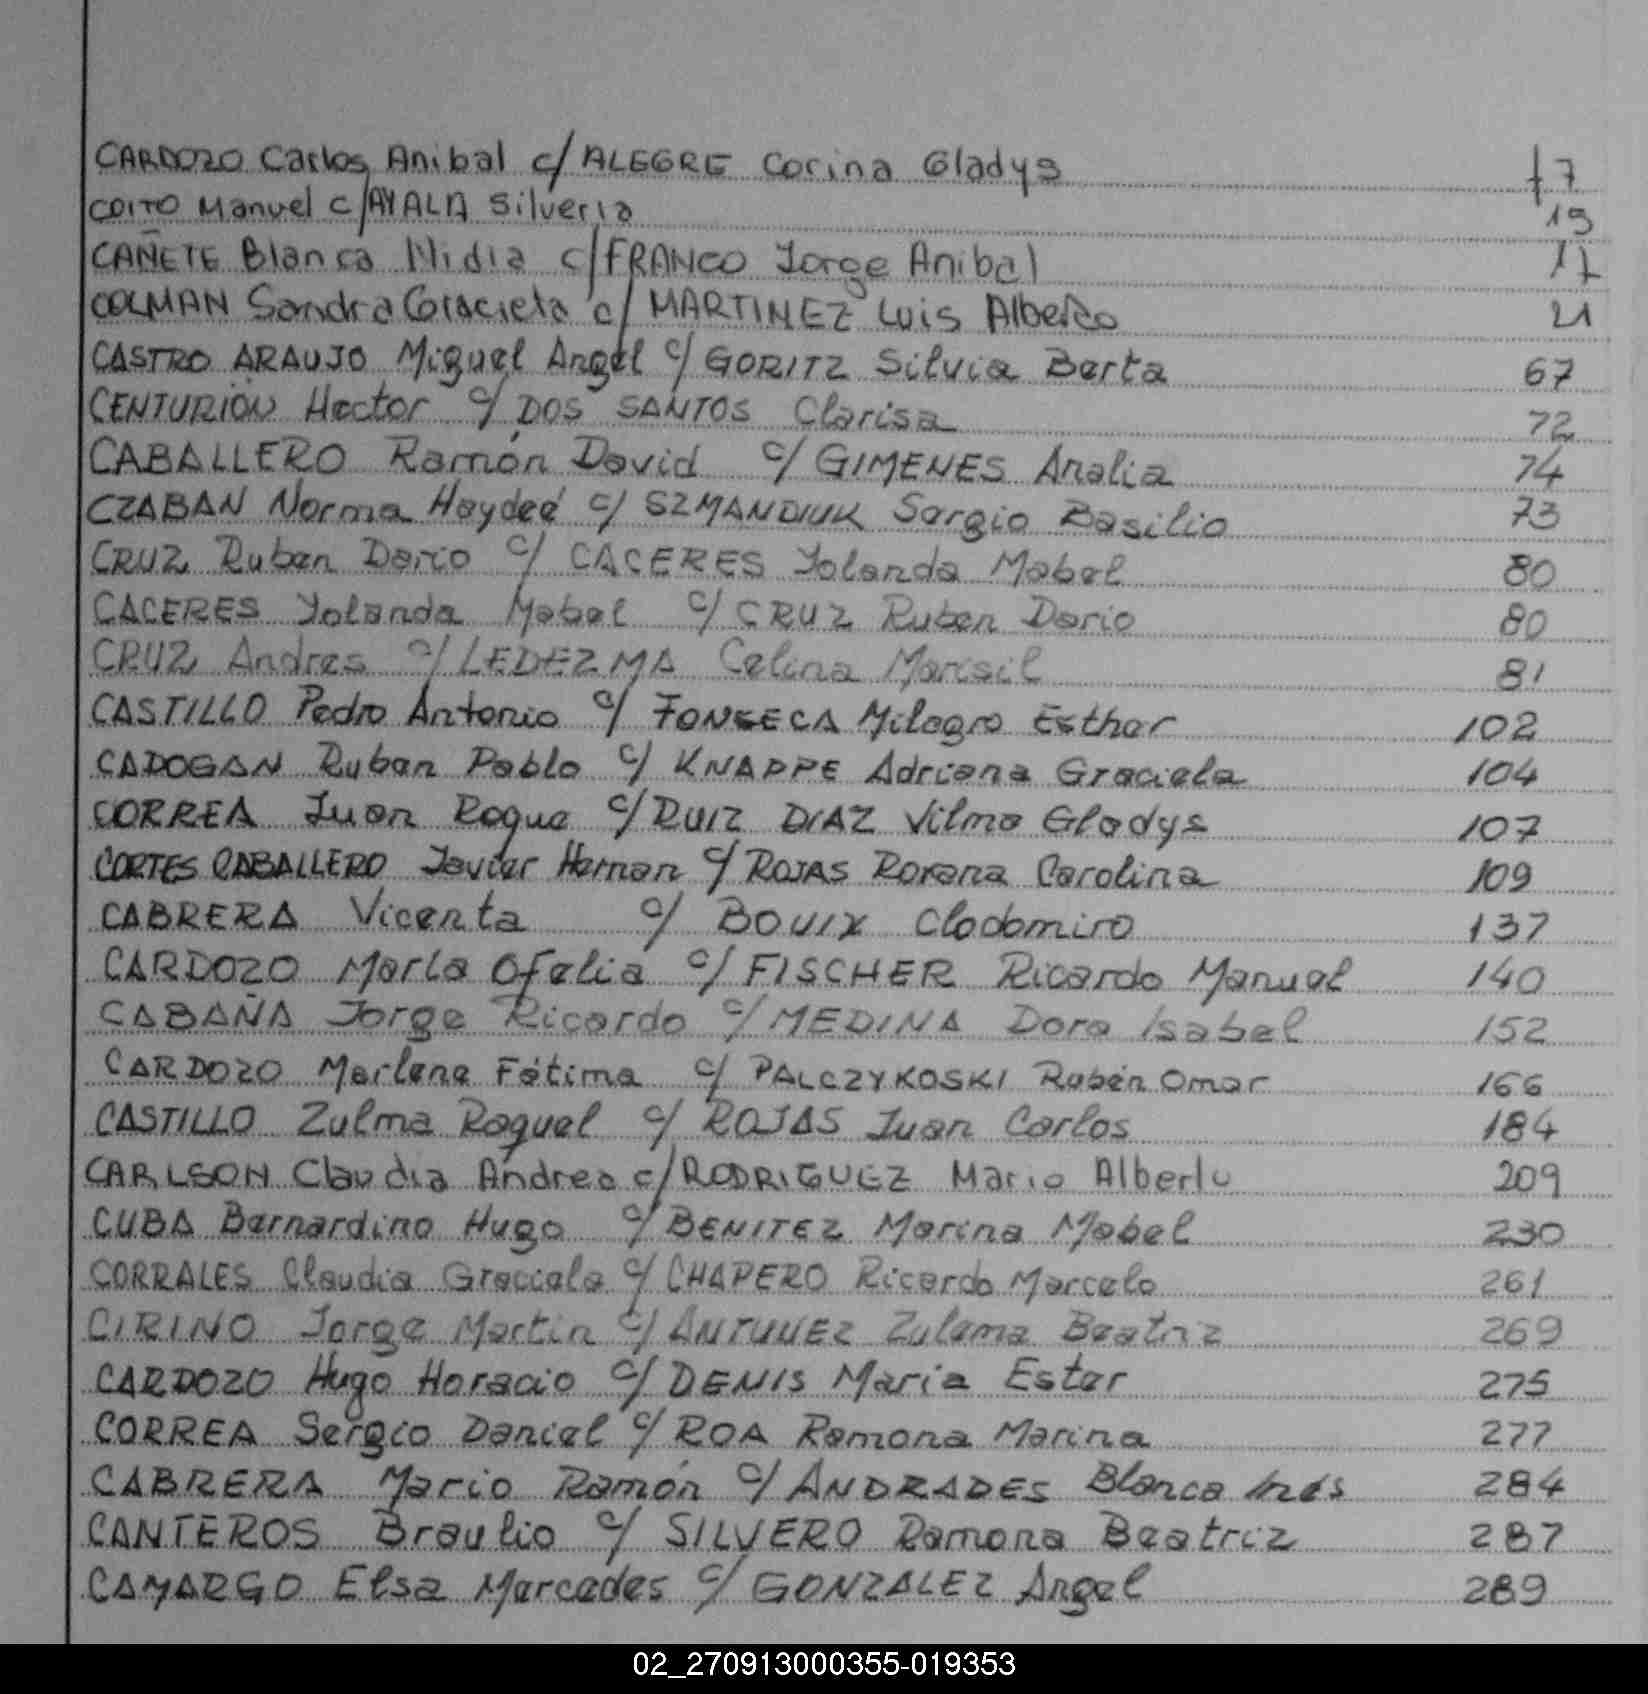 CARDOZO Carlos Anibal c/ ALEGRE Corina Gladys 7
COITO Manuel c/ AYALA Silveria 19
CAÑETE Blanca Nidia c/ FRANCO Jorge Anibal 17
COLMAN Sandra Graciela c/ MARTINEZ Luis Alberto 21
CASTRO ARAUJO Miguel Angel c/ GORITZ Silvia Berta 67
CENTURIÓN Hector c/ DOS SANTOS Clarisa 72
CABALLERO Ramón David c/ GIMENES Analia 74
CZABAN Norma Haydeé c/ SZMANDIUK Sergio Basilio 73
CRUZ Ruben Dario c/ CACERES Yolanda Mabel 80
CACERES Yolanda Mabel c/ CRUZ Ruben Dario 80
CRUZ Andres c/ LEDEZMA Celina Marisil 81
CASTILLO Pedro Antonio c/ FONSECA Milagro Esther 102
CADOGAN Ruben Pablo c/ KNAPPE Adriana Graciela 104
CORREA Juan Roque c/ RUIZ DIAZ Vilma Gladys 107
CORTES CABALLERO Javier Hernan c/ ROJAS Roxana Carolina 109
CABRERA Vicenta c/ BOUIX Clodomiro 137
CARDOZO María Ofelia c/ FISCHER Ricardo Manuel 140
CABAÑA Jorge Ricardo c/ MEDINA Dora Isabel 152
CARDOZO Marlene Fátima c/ PALCZYKOSKI Rubén Omar 166
CASTILLO Zulma Raquel c/ ROJAS Juan Carlos 184
CARLSON Claudia Andrea c/ RODRIGUEZ Mario Alberto 209
CUBA Bernardino Hugo c/ BENITEZ Marina Mabel 230
CORRALES Claudia Graciela c/ CHAPERO Ricardo Marcelo 261
CIRINO Jorge Martin c/ ANTUNEZ Zulema Beatriz 269
CARDOZO Hugo Horacio c/ DENIS Maria Ester 275
CORREA Sergio Daniel c/ ROA Ramona Marina 277
CABRERA Mario Ramón c/ ANDRADES Blanca Inés 284
CANTEROS Braulio c/ SILVERO Ramona Beatriz 287
CAMARGO Elsa Mercedes c/ GONZALEZ Angel 289
02_270913000355-019353